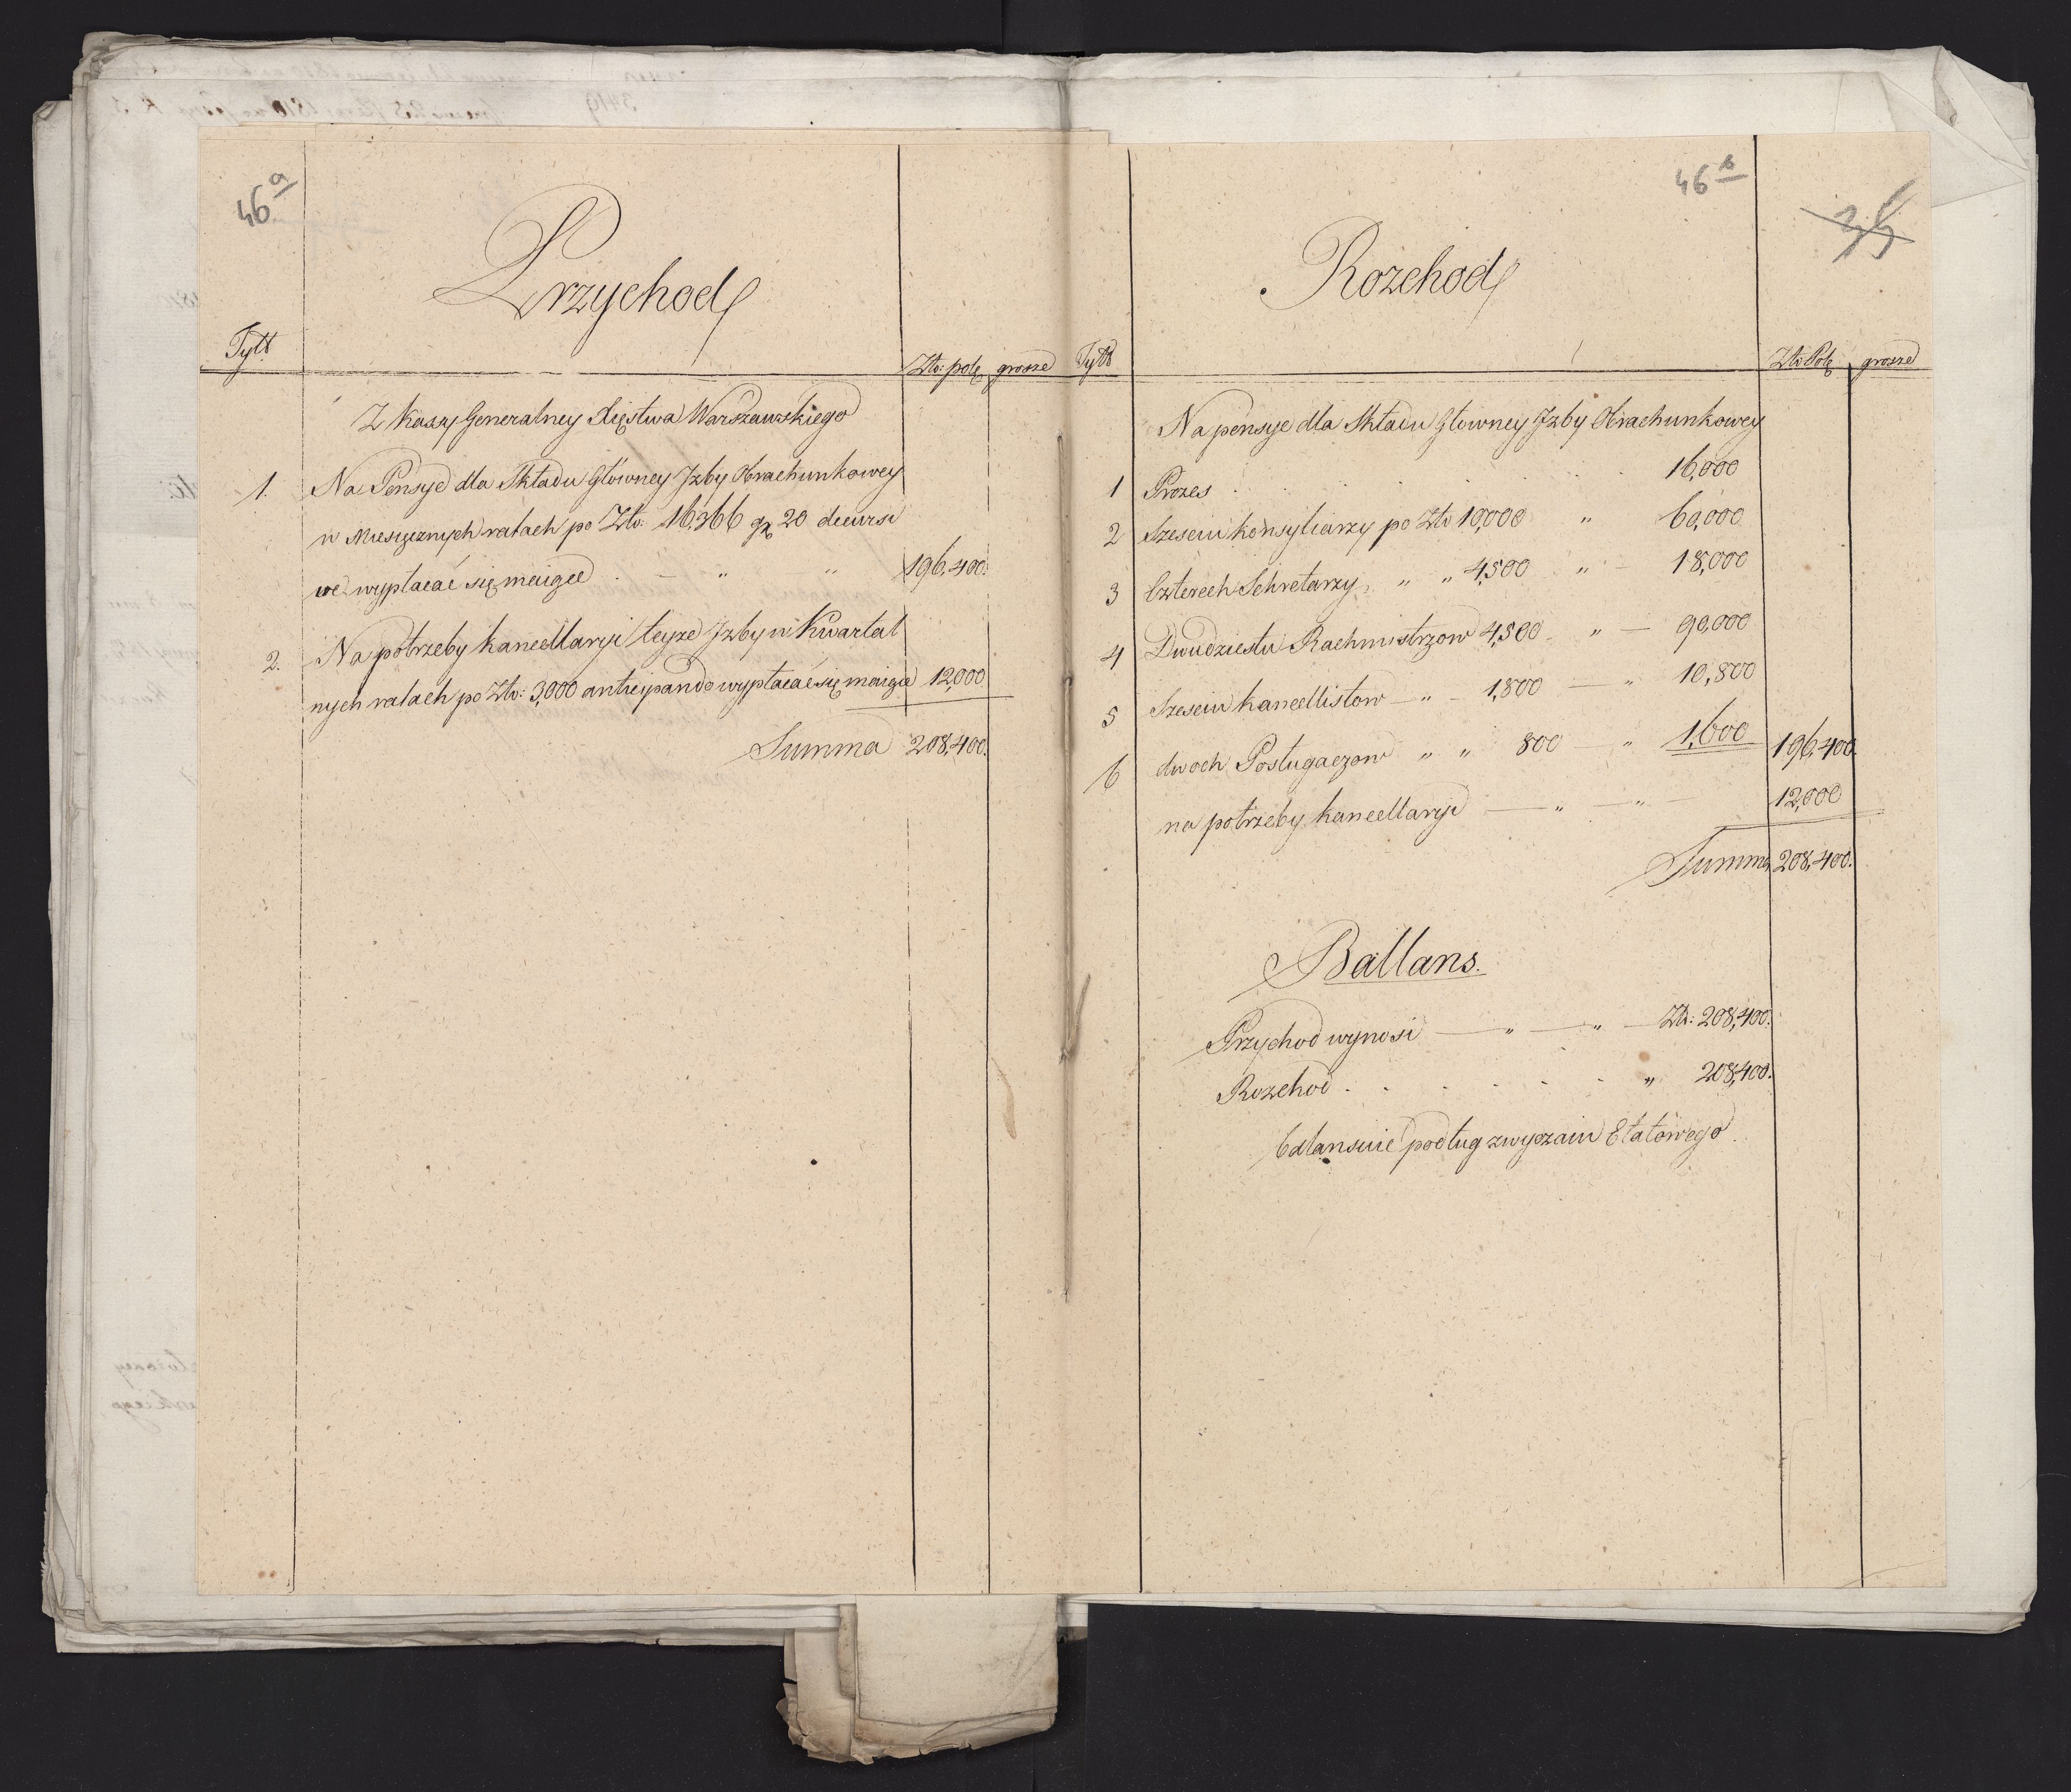 46 a
Przychod
Tytł
Zło: pol: grosze
Z Kassy Generalney Xięstwa Warszawskiego
1. Na Pensye dla Składu Głowney Jzby Obrachunkowey
w Miesięcznych ratach po Zło: 16,366 gr 20 decursi
we wypłacać się maiące . — " " 196,400.
2. Na potrzeby kancellaryi teyze Jzby w Kwartal
nych ratach po Zło: 3,000 anticipando wypłacać się maiące 12,000
Summa 208,400.
46 b
Rozchod
Tytł
Zło Pol: grosze
Na pensye dla Składu Głowney Jzby Obrachunkowey
1 Prezes . . . . . . 16,000
2 Szesciu konsyliarzy po Zło 10,000 " 60,000
3 Czterech Sekretarzy " " 4,500 " — 18,000
4 Dwudziestu Rachmistrzow 4,500 — " — 90,000
5 Szesciu kancellistow — " — 1,800 — " 10,800
6 dwoch Posługaczow " " 800 — " 1,600 196,400.
na potrzeby kancellaryi — " — " — 12,000
Summa 208,400.
Ballans.
Przychod wynosi — " — " — Zło: 208,400.
Rozchod . . . . . . " 208,400.
balansuie podług zwyczaiu Etatowego.